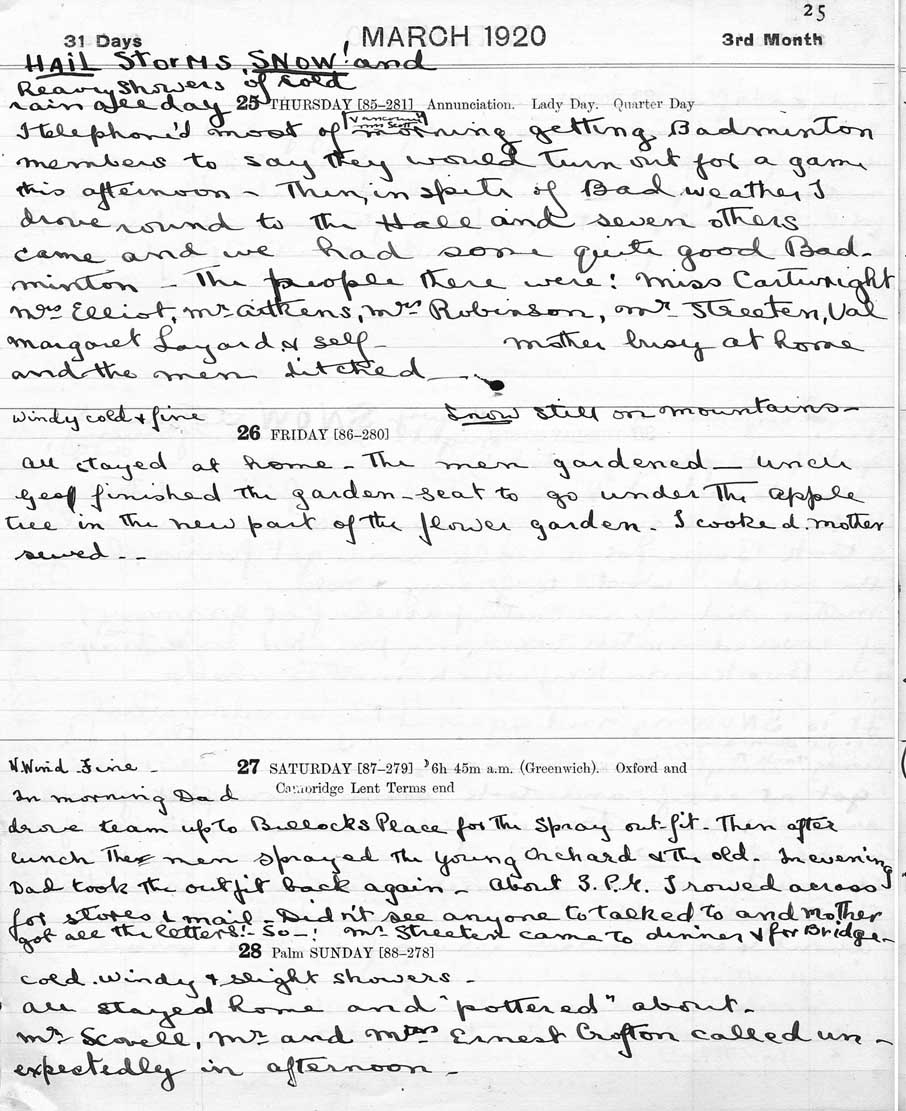 25
31 Days MARCH 1920 3rd Month
HAIL Storms, SNOW! and
Heavy Showers of cold
rain all day 25 THURSDAY [85–281] Annunciation. Lady Day. Quarter Day
I telephone'd most of morning getting Badminton
members to say they would turn out for a game
this afternoon – Then, in spite of Bad weather, I
drove round to the Hall and seven others
came and we had some quite good Bad-
minton – The people there were: Miss Cartwright
Mrs Elliot, Mr Aitkens, Mrs Robinson, Mr Streeten, Val
Margaret Layard & self – mother busy at home
and the men ditched –
windy cold & fine Snow still on mountains –
26 FRIDAY [86–280]
All stayed at home – The men gardened – Uncle
Geof finished the garden-seat to go under The apple
tree in the new part of the flower garden. I cooked. Mother
sewed - -
N. Wind. Fine – 27 SATURDAY [87–279] 6h 45m a.m. (Greenwich). Oxford and
In morning Dad Cambridge Lent Terms end
drove team up to Bullocks Place for the Spray out-fit. Then after
lunch The men sprayed the Young Orchard & The old. In evening
Dad took the outfit back again – About 3. P.M. I rowed across
for stores & mail – Didn't see anyone to talked to and Mother
got all the letters! – So – ! Mr Streeten came to dinner & for Bridge –
28 Palm SUNDAY [88–278]
Cold. windy & slight showers –
All stayed home and "pottered" about.
Mr Scovell, Mr and Mrs Ernest Crofton called un –
expectedly in afternoon –